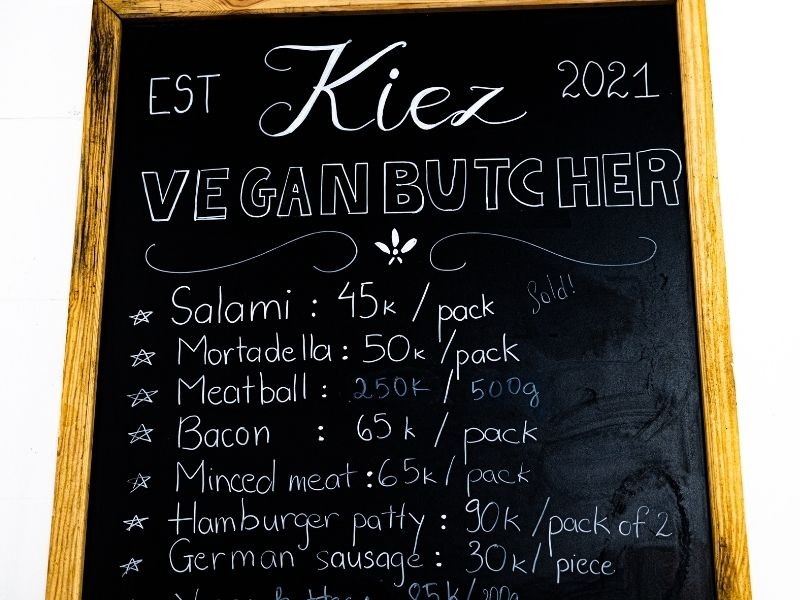 EST Kiez 2021
VEGAN BUTCHER
☆ Salami : 45k / pack Sold!
☆ Mortadella : 50k /pack
☆ Meatball : 250k / 500g
☆ Bacon : 65k / pack
☆ Minced meat : 65k / pack
☆ Hamburger patty : 90k /pack of 2
☆ German sausage : 30k/ piece